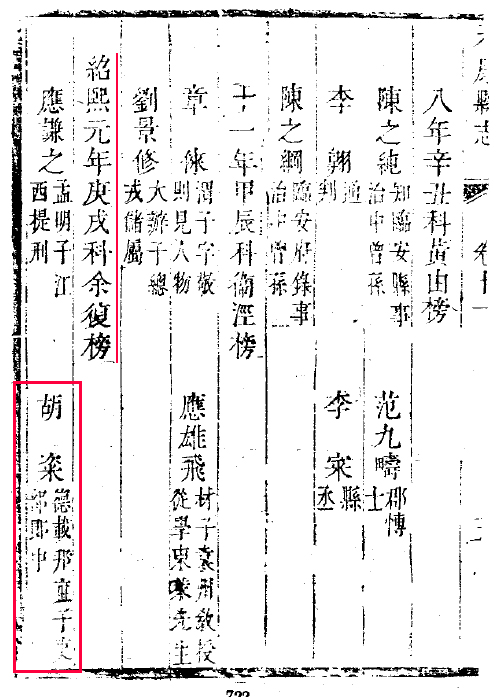 康縣志 卷十一
八年辛丑科黃由榜
陳之純 知臨安縣事治中曾孫 范九疇 郡博士
李翺 通判 李寀 縣丞
陳之綱 臨安府錄事治中曾孫
十一年甲辰科衛涇榜
章倈 渭子字敬則見人物 應雄飛 材子袁州敎授從學東萊先生
劉景修 大辦子總戎儲屬
紹熙元年庚戌科余復榜
應謙之 孟明子江西提刑 胡粢 德載邦直子吏部郎中